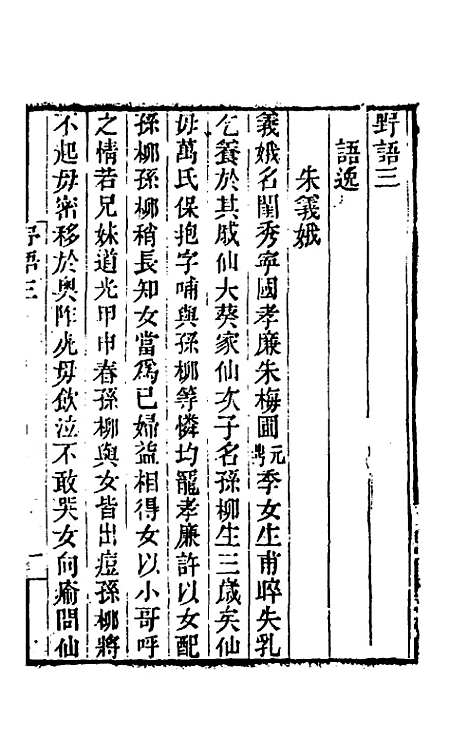 野語三
語逸
朱義娥
義娥名閨秀寧國孝廉朱梅圃元鼎季女生甫晬失乳
乞養於其戚仙大葵家仙次子名孫柳生三歲矣仙
毋萬氏保抱字哺與孫柳等憐均寵孝廉許以女配
孫柳孫柳稍長知女當爲已婦益相得女以小哥呼
之情若兄妹道光甲申春孫柳與女皆出痘孫柳將
不起毋密移於奥阼虎毋飲泣不敢哭女向瘉問仙
野語三
一